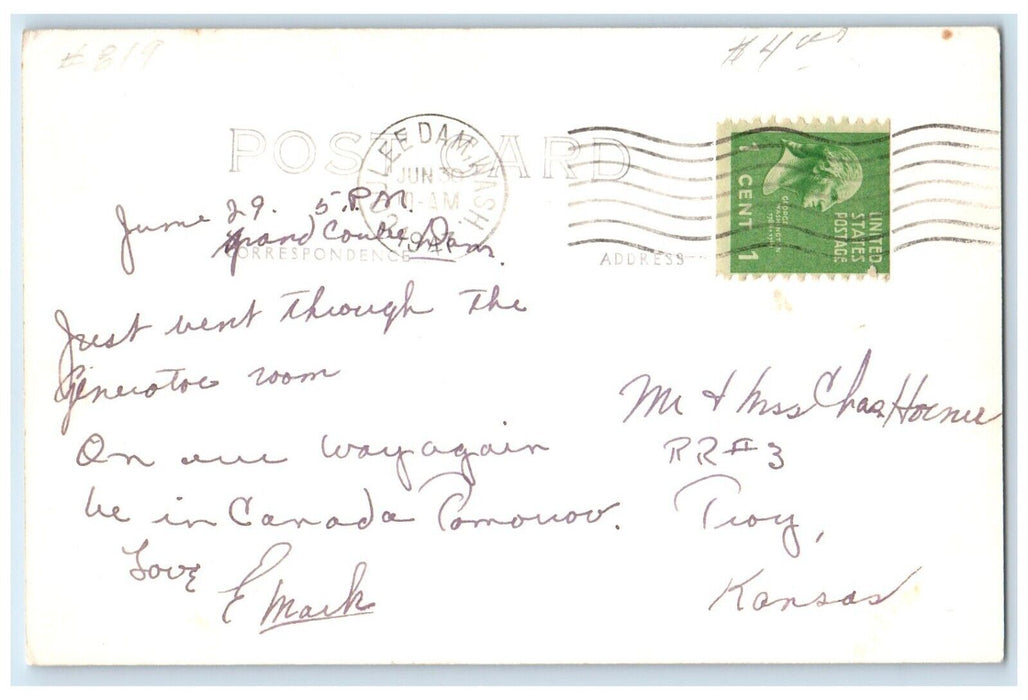 # 819
# 4
POST CARD
COULEE DAM, WASH.
JUN 30
-AM
194
UNITED STATES POSTAGE
GEORGE WASHINGTON
1 CENT 1
June 29. 5 P.M.
Grand Coulee Dam.
CORRESPONDENCE
ADDRESS
Just went through the
Generator room
On our way again
be in Canada Tomorrow.
Love
E Mark
Mr & Mrs Chas. Horner
RR #3
Troy,
Kansas